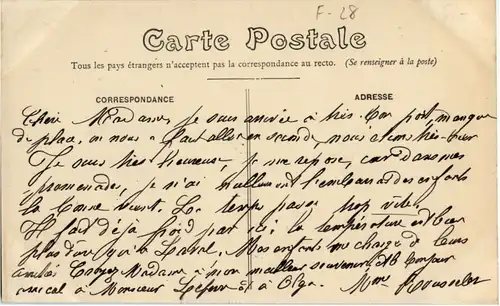 F-28
Carte Postale
Tous les pays étrangers n'acceptent pas la correspondance au recto. (Se renseigner à la poste)
CORRESPONDANCE
ADRESSE
Chère Madame, je suis arrivée à très bon port, manque
de place, on nous a faut aller en seconde, nous étions très bien
Je suis très heureuse, je me repose, car dans mes
promenades, je n'ai nullement l'embarras des enfants
la bonne suit. Le temps passe trop vite.
Il fait déjà froid par ici; la température est bien
plus dure qu'à Laval. Mes enfants me charge de leurs
amitiés Croyez Madame à mon meilleur souvenir, bonjour
amical à Monsieur et à Olga. Mme Rousselet